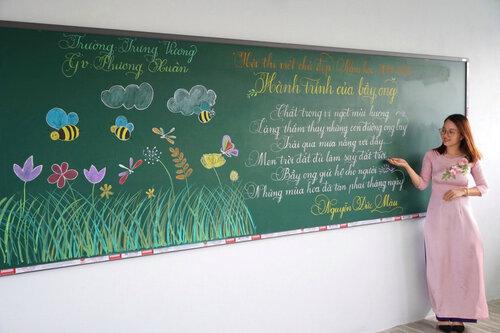 Trường Trưng Vương
Gv Phương Xuân
Hội thi viết chữ đẹp
Hành trình của bầy ong
Chất trong vị ngọt mùi hương
Lặng thầm thay những con đường ong bay
Trải qua mưa nắng vơi đầy
Men trời đất đủ làm say đất trời
Bầy ong giữ hộ cho người
Những mùa hoa đã tàn phai tháng ngày
Nguyễn Đức Mậu